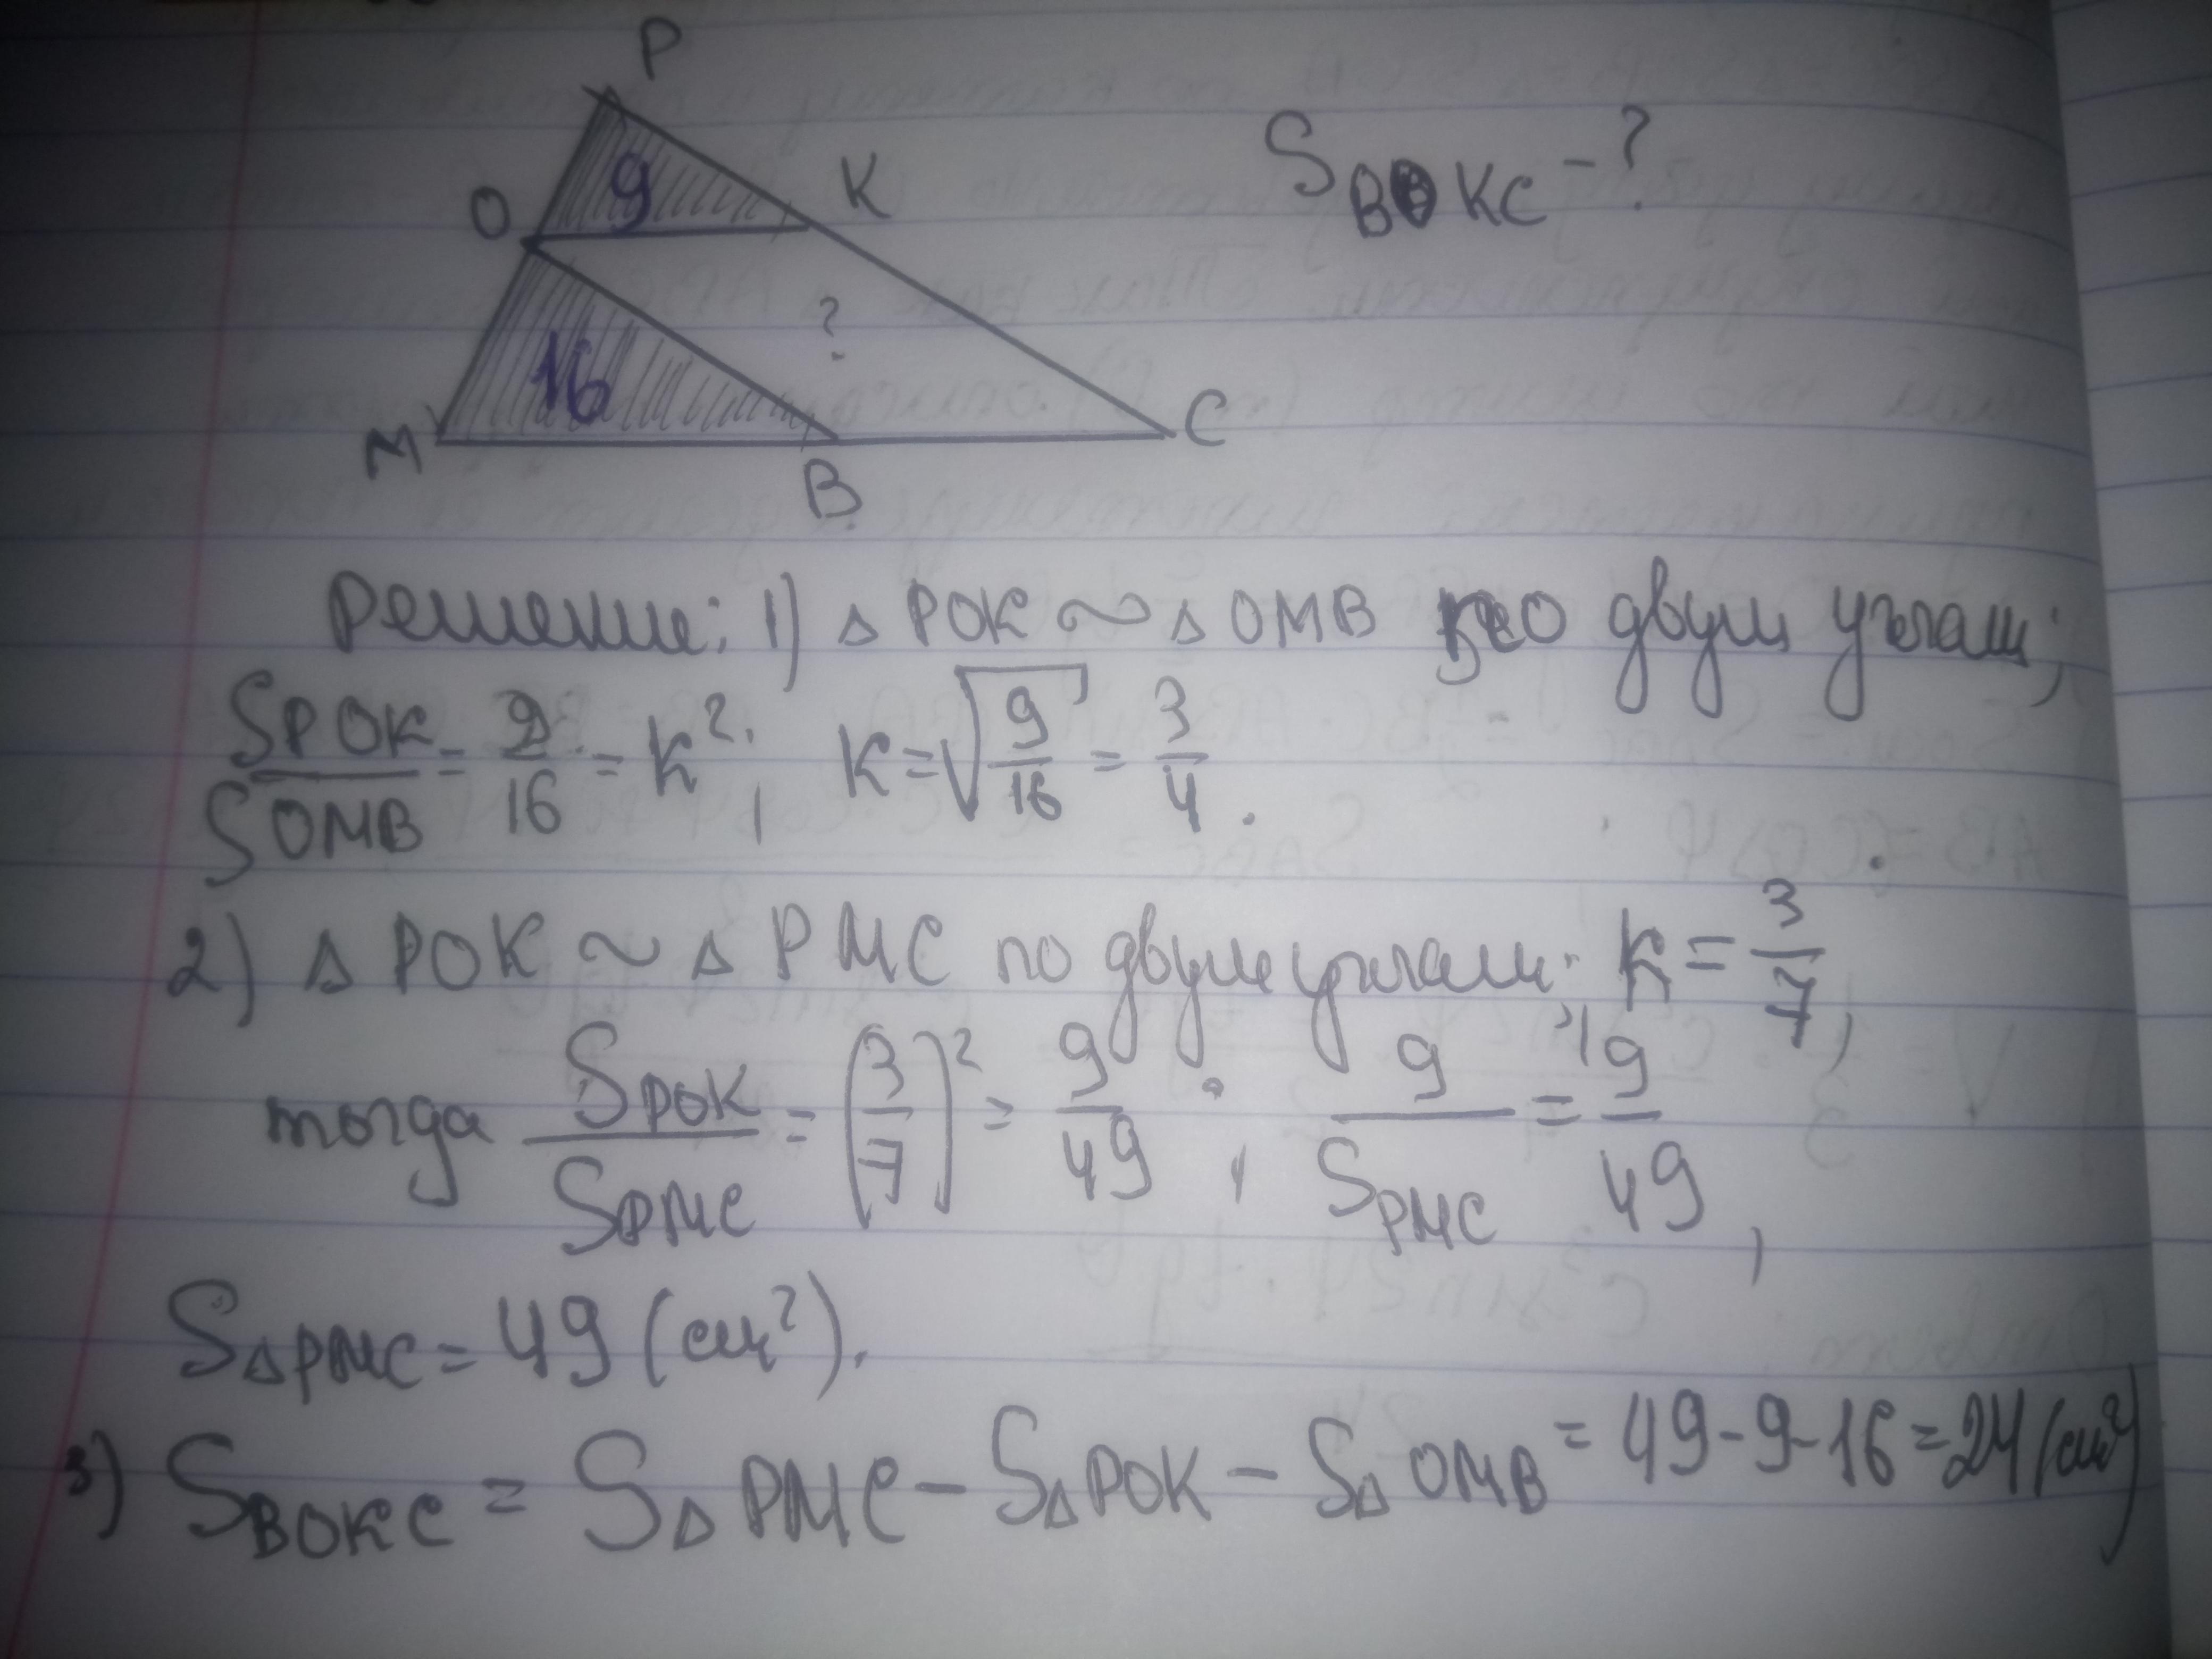 P
9
K
O
S_BOKC - ?
?
16
M
B
C
Решение: 1) △ POK ∼ △ OMB по двум углам;
S_POK / S_OMB = 9/16 = K²; K = √(9/16) = 3/4.
2) △ POK ∼ △ PMC по двум углам. K = 3/7,
тогда S_POK / S_PMC = (3/7)² = 9/49; 9 / S_PMC = 9/49,
S△PMC = 49 (см²).
3) S_BOKC = S△PMC − S△POK − S△OMB = 49 - 9 - 16 = 24 (см²)